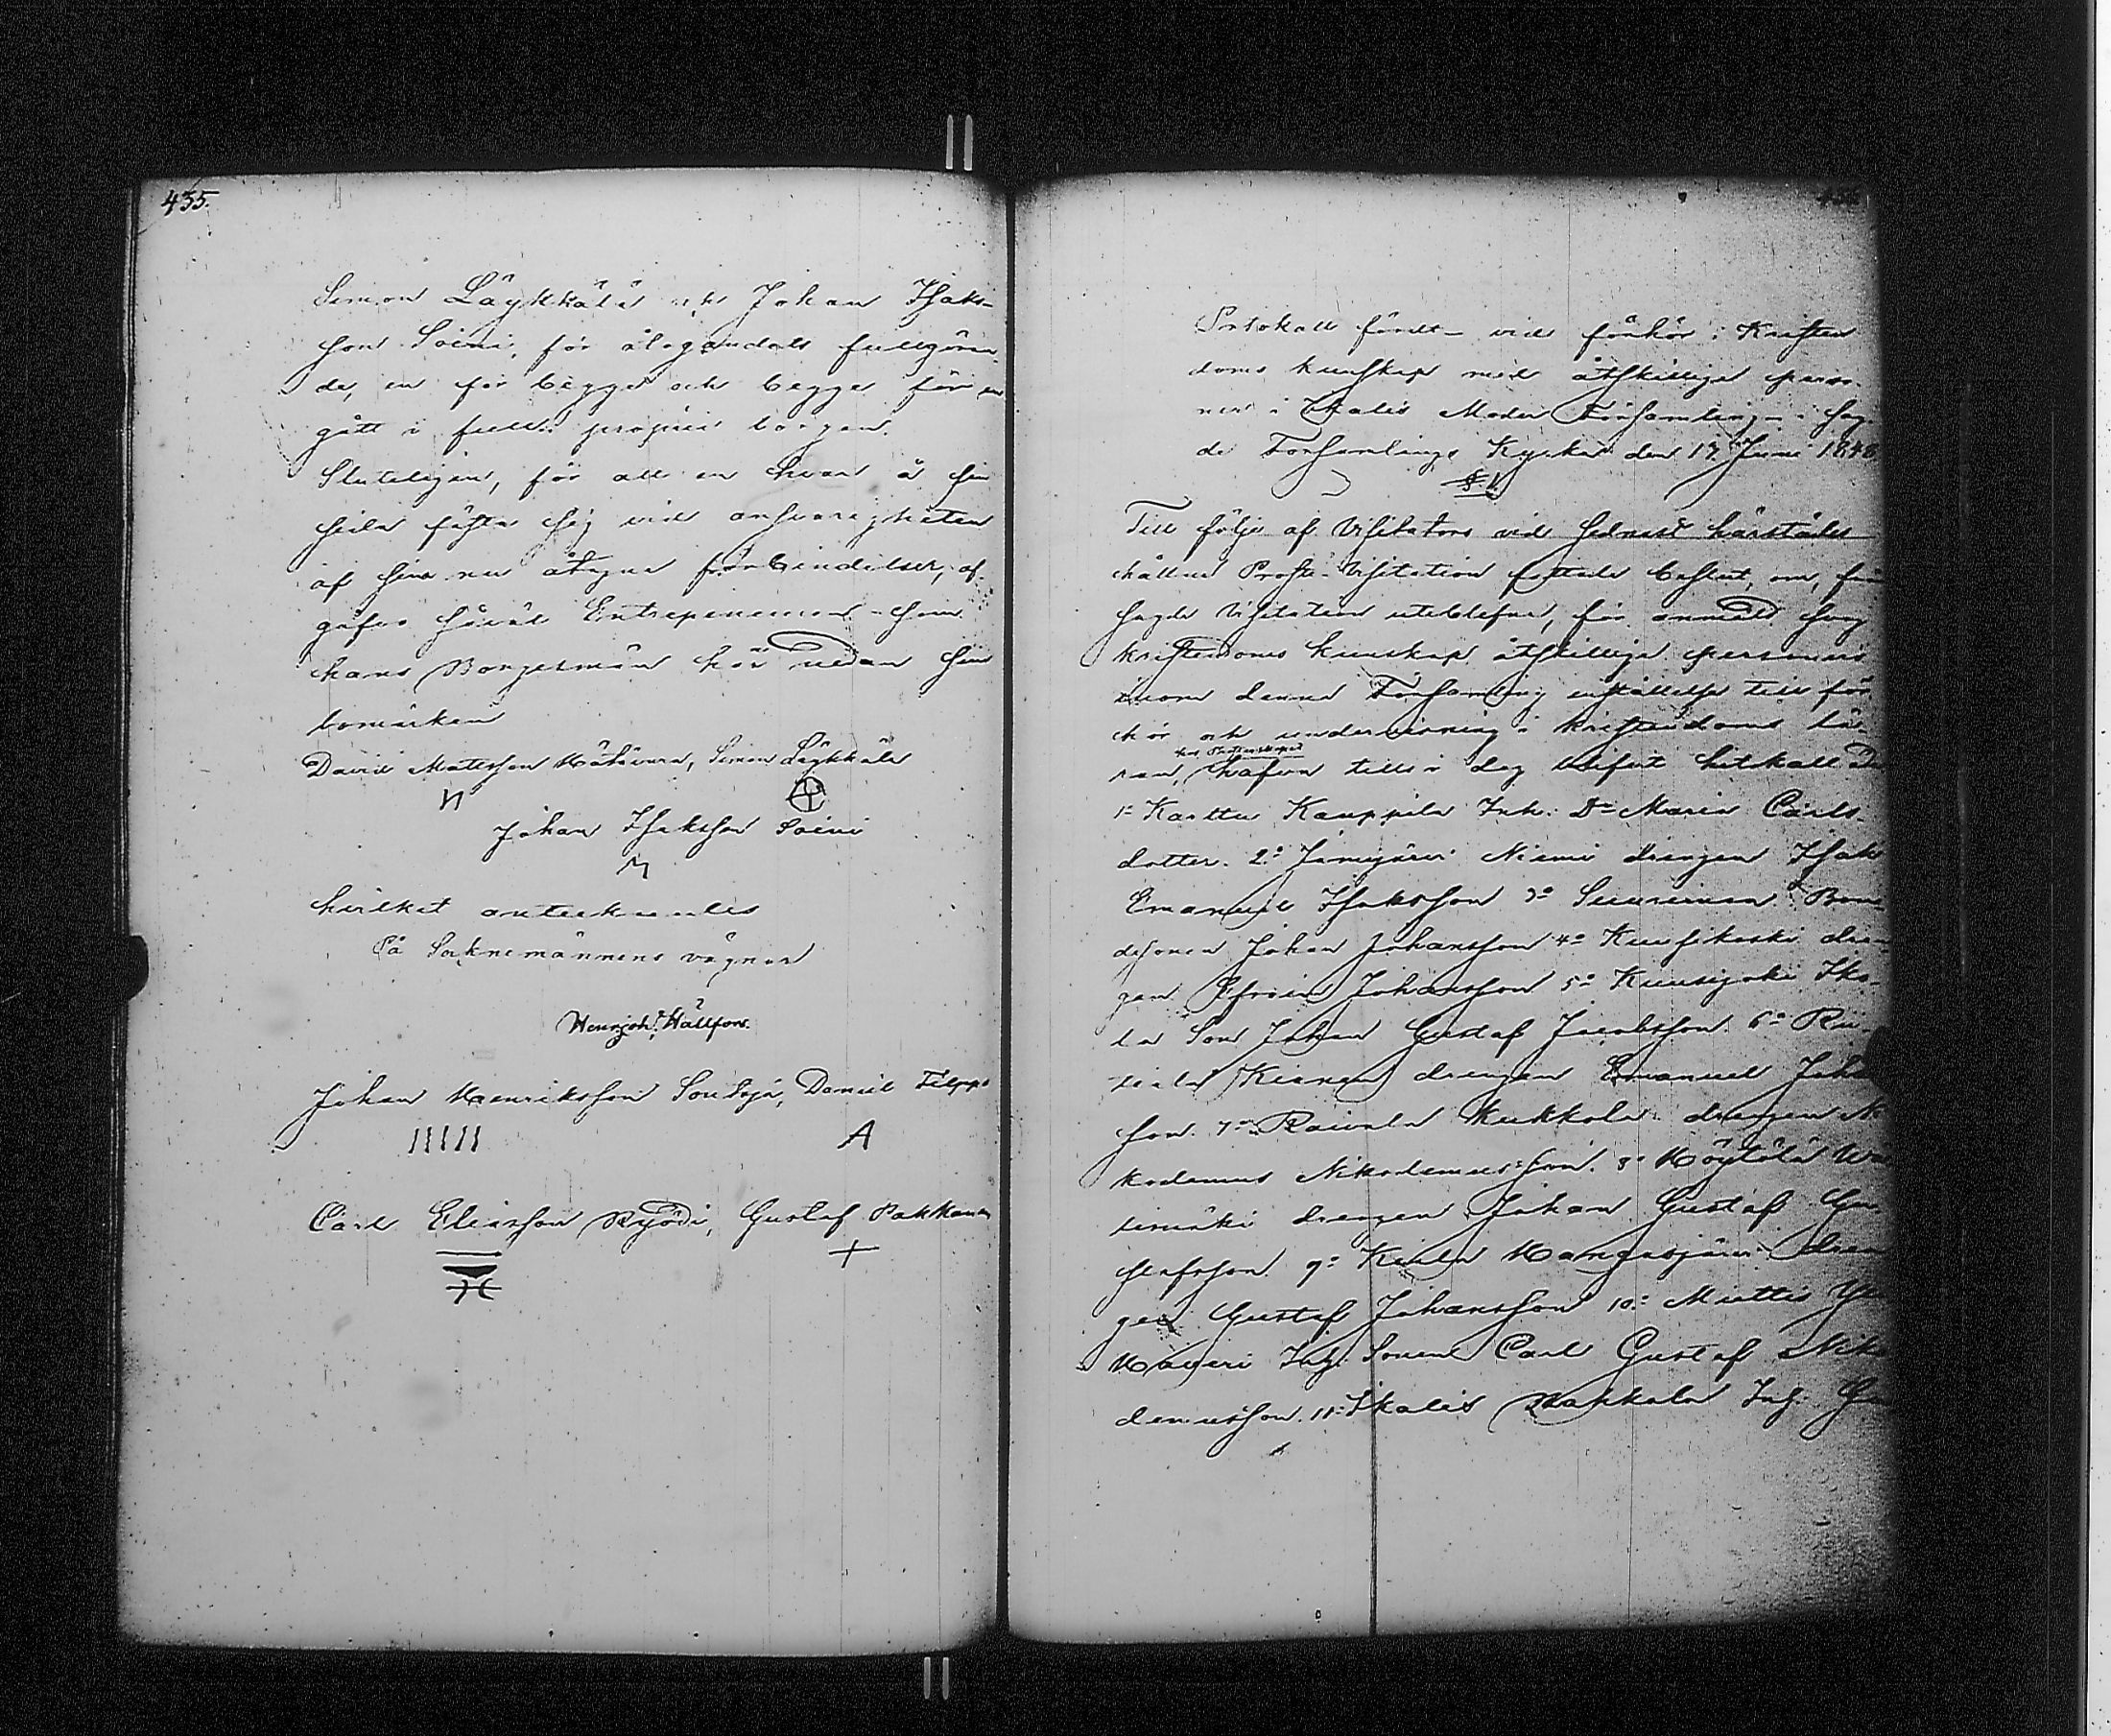 435.
Simon Läykkälä och Johan Isaks-
son Soini, för åliggandets fullgöran-
de, en för begge och begge för en
gått i full proprie borgen.
Sluteligen, för att en hvar å sin
sida fästa sig vid ansvarigheten
af sina nu åtagna förbindelser, af-
gåfvo såväl Entreprenören som
hans Borgesmän här nedan sina
bomärken
David Matsson Hätönen, Simon Läykkälä
Johan Isaksson Soini
hvilket antecknades
På Soknemännens vägnar
Henr: Joh: Hällfors.
Johan Henriksson Sontaja, Daniel Filppo
Carl Eliasson Ryödi, Gustaf Pakkanen
436
Protokoll fördt vid förhör i Kristen
doms kunskap med åtskillige perso-
ner i Ikalis Moder Församling i sag-
de Församlings Kyrka den 17 Juni 1848
§ 1.
Till följe af Visitators vid sednast härstädes
hållne Prosts-Visitation fattade beslut, om, från
sagde Visitation uteblefne, för anmäld svag
kristendoms kunskap åtskillige personers
inom denna Församling inställelse till för
hör och undervisning i kristendoms lä-
ran, hafva till i dag blifvit hitkallade
1o Karttu Kauppila Inh: Dr Maria Carls-
dotter. 2o Jämijärvi Niemi drengen Isak
Emanuel Isaksson 3o Suurimaa Bon-
desonen Johan Johansson 4o Kuusikoski dren-
gen Efraim Johansson 5o Kuusijoki Iko-
la Son Johan Gustaf Jacobsson. 6o Rii-
tiala Kianen drengen Emanuel Johans
son. 7o Raivala Kukkola drengen Ni
kodemus Nikodemusson. 8o Höytölä
limäki drengen Johan Gustaf Gu
stafsson. 9o Keila Mangasjärvi dren
gen Gustaf Johansson 10o Muttis Yli
Haveri Inh: Sonen Carl Gustaf Niko
demusson. 11o Ikalis Rakkola Inh: